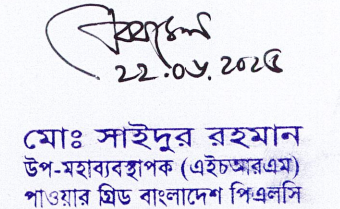 ২২.০৬.২০২৫
মোঃ সাইদুর রহমান
উপ-মহাব্যবস্থাপক (এইচআরএম)
পাওয়ার গ্রিড বাংলাদেশ পিএলসি